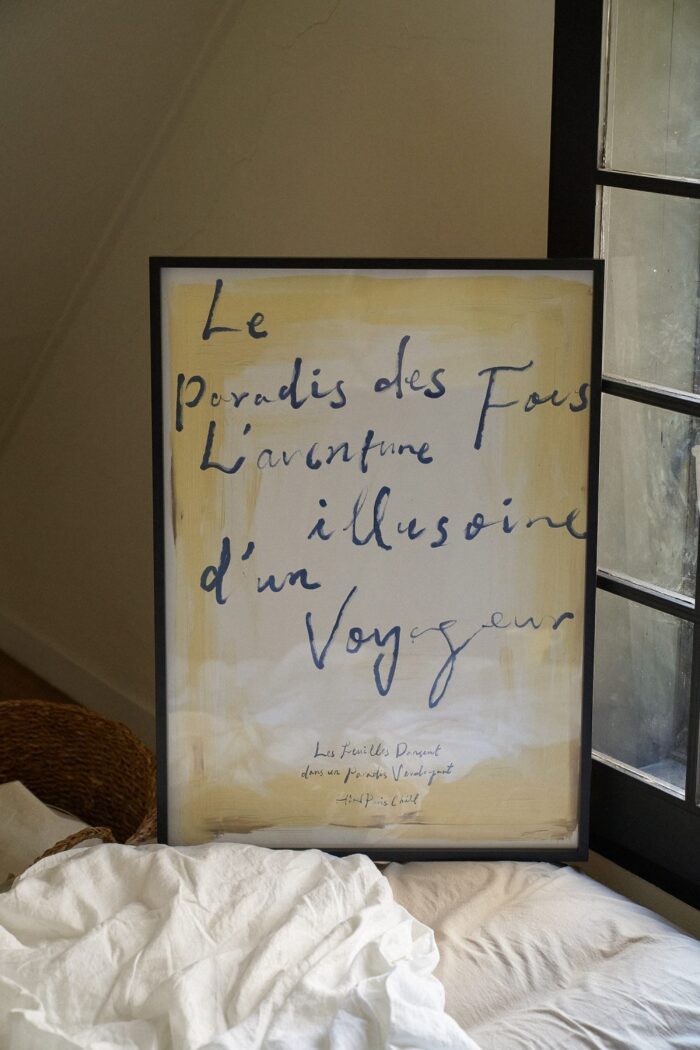 Le
Paradis des Fous
L'aventure
illusoire
d'un
Voyageur
Les Feuilles Dansent
dans un Paradis Verdoyant
Paris Chill